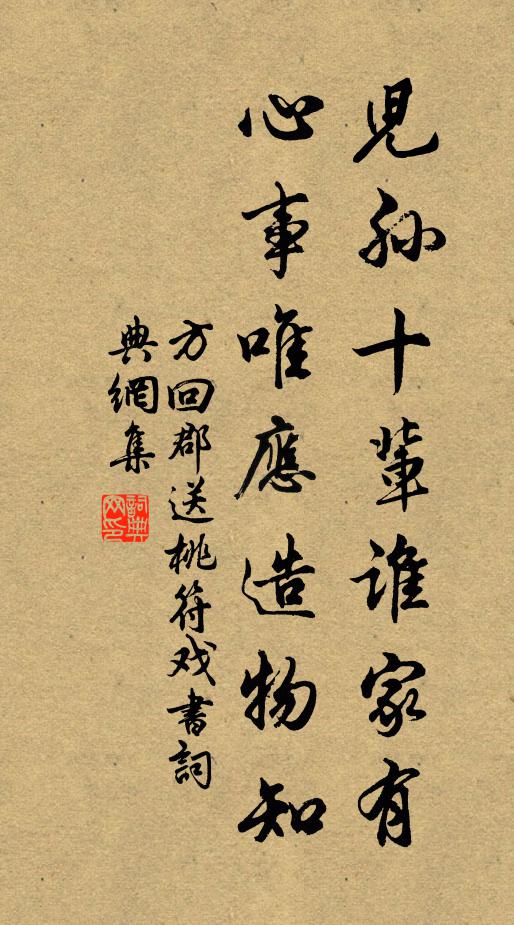 兒孫十輩誰家有
心事唯應造物知
方回郡送桃符戏書詞
典網集
詞典
网印